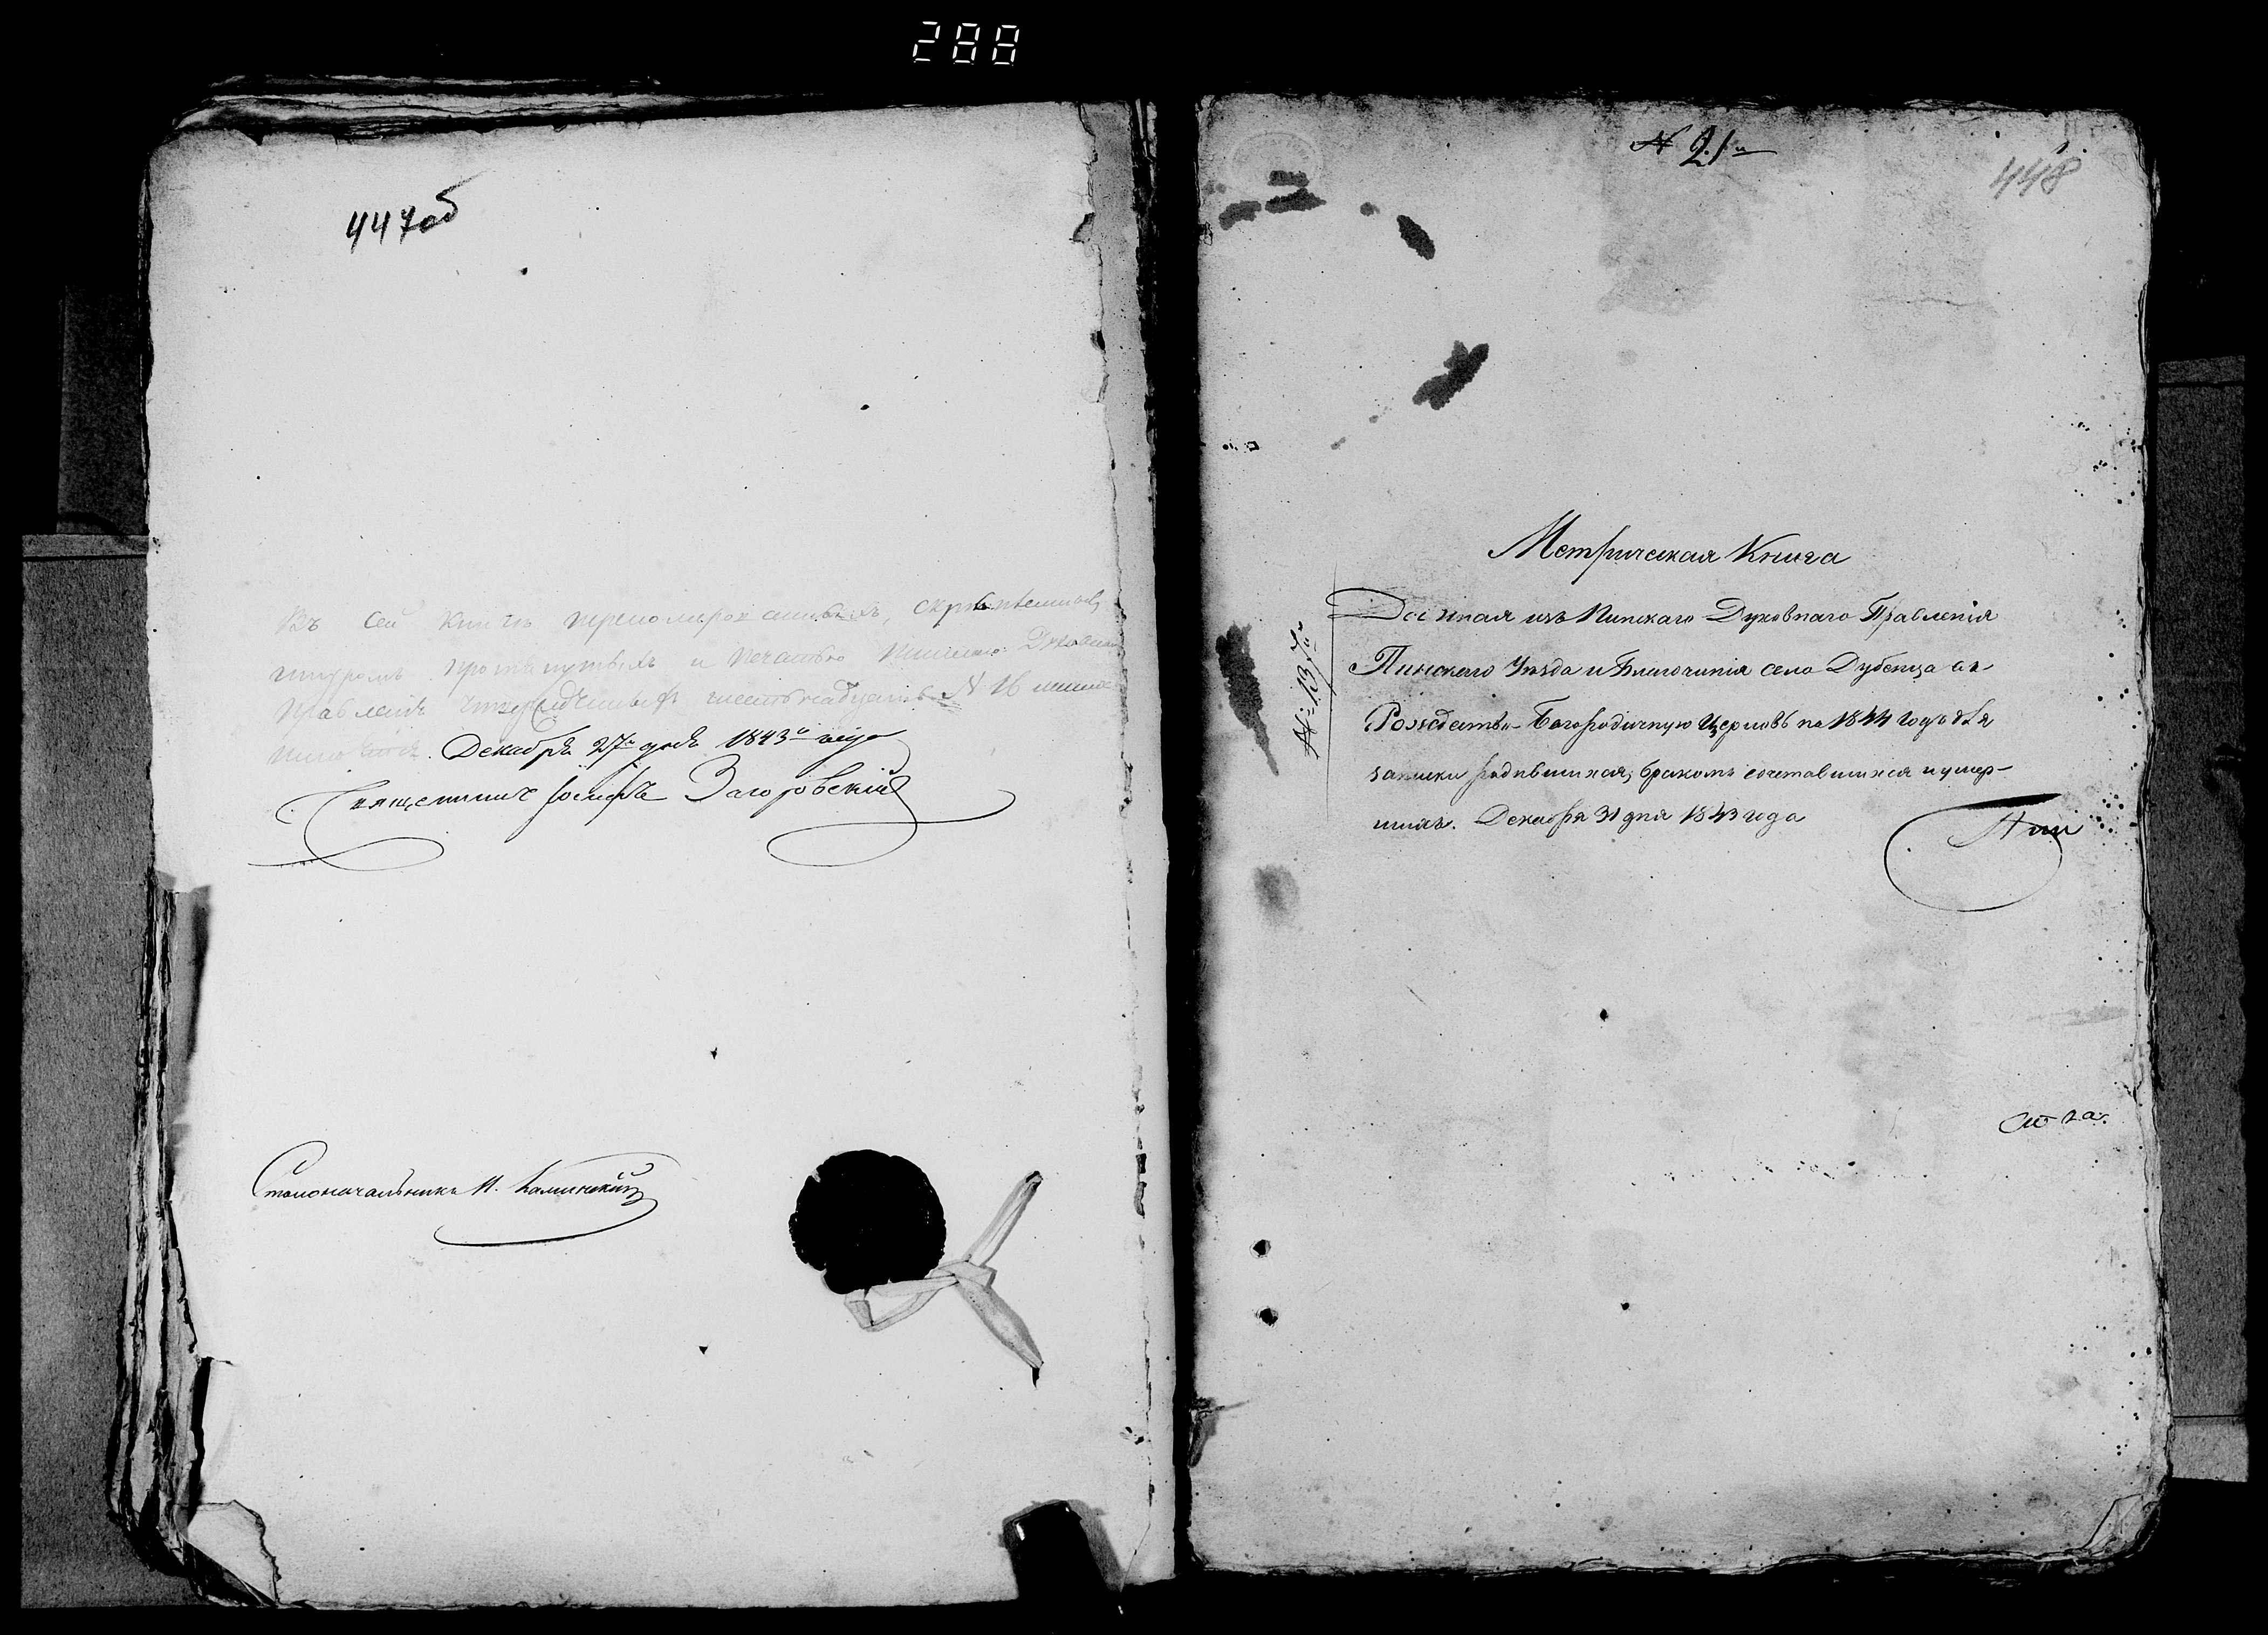 288
447об
Въ сей книгѣ перномерованныхъ, скрѣпленныхъ,
шнуромъ протянутыхъ и печатью Пинскаго Духовнаго
Правленія утвержденныхъ шестьнадцать № 16 листовъ
Декабря 27го дня 1843го года
Священникъ Іосифъ Загоровскій
Столоначальникъ И. Каминскій
№ 21й
448
№ 137й
Метрическая Книга
Данная изъ Пинскаго Духовнаго Правленія
Пинскаго Уѣзда и Благочинія села Дубенца въ
Рождество-Богородичную Церковь на 1844 годъ для
записки родившихся, бракомъ сочетавшихся и умер-
шихъ. Декабря 31 дня 1843 года